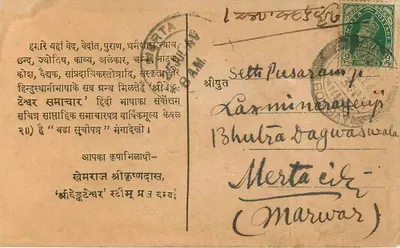 हमारे यहां वेद, वेदांत, पुराण, धर्मशास्त्र, न्याय,
छन्द, ज्योतिष, काव्य, अलंकार, चम्पू, नाटक,
कोश, वैद्यक, सांप्रदायिकस्तोत्रादि, संस्कृत और
हिन्दुस्थानीभाषाके सब ग्रन्थ मिलतेहैं "श्रीवेङ्क-
टेश्वर समाचार" हिंदी भाषाका सर्वोत्तम
सचित्र साप्ताहिक समाचारपत्र वार्षिकमूल्य केवल
२॥) है "बडा सूचीपत्र" मंगादेखो।
आपका कृपाभिलाषी-
खेमराज श्रीकृष्णदास,
"श्रीवेङ्कटेश्वर" स्टीम् प्रेस बम्बई
MERTA
8 A.M.
श्रीयुत
Seth Pusaramji
Laxminarayenji
Bhutra Dagwaswala
Merta city
(Marwar)